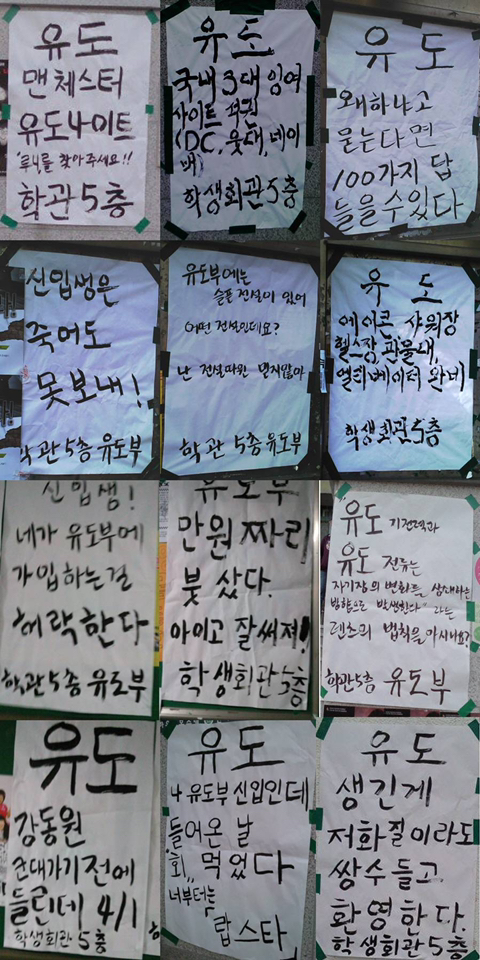 유도
맨체스터
유도나이트
'루니'를 찾아주세요!!
학관 5층
유도
국내 3대 잉여
사이트 석권
(DC, 웃대, 네이
버)
학생회관 5층
유도
왜하냐고
묻는다면
100가지 답
들을수있다
신입생은
죽어도
못보내!
학관 5층 유도부
유도부에는
슬픈 전설이 있어
어떤 전설인데요?
난 전설따윈 믿지않아
학관 5층 유도부
유도
에어콘 샤워장
헬스장, 관물대,
엘리베이터 완비
학생회관 5층
신입생!
네가 유도부에
가입하는걸
허락한다
학관 5층 유도부
유도부
만원 짜리
붓 샀다.
아이고 잘써져!
학생회관 5층
유도 기전력과
유도 전류는
자기장의 변화를 상쇄하는
방향으로 발생한다" 라는
렌츠의 법칙을 아시나요?
학관 5층 유도부
유도
강동원
군대가기 전에
들린데 4/1
학생회관 5층
유도
나 유도부 신입인데
들어온 날
"회" 먹었다
너부터는
「랍스타」
유도
생긴게
저화질이라도
쌍수들고
환영한다.
학생회관 5층